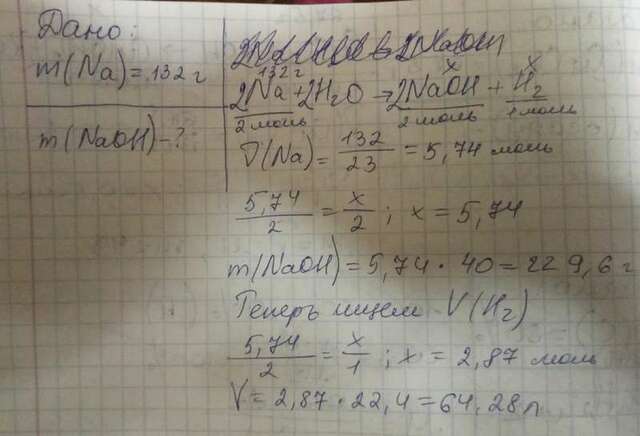 Дано:
m(Na) = 132 г
m(NaOH) - ?
132 г x x
2Na + 2H₂O → 2NaOH + H₂
2 моль 2 моль 1 моль
ν(Na) = 132/23 = 5,74 моль
5,74/2 = x/2 ; x = 5,74
m(NaOH) = 5,74 · 40 = 229,6 г
Теперь ищем V(H₂)
5,74/2 = x/1 ; x = 2,87 моль
V = 2,87 · 22,4 = 64,28 л